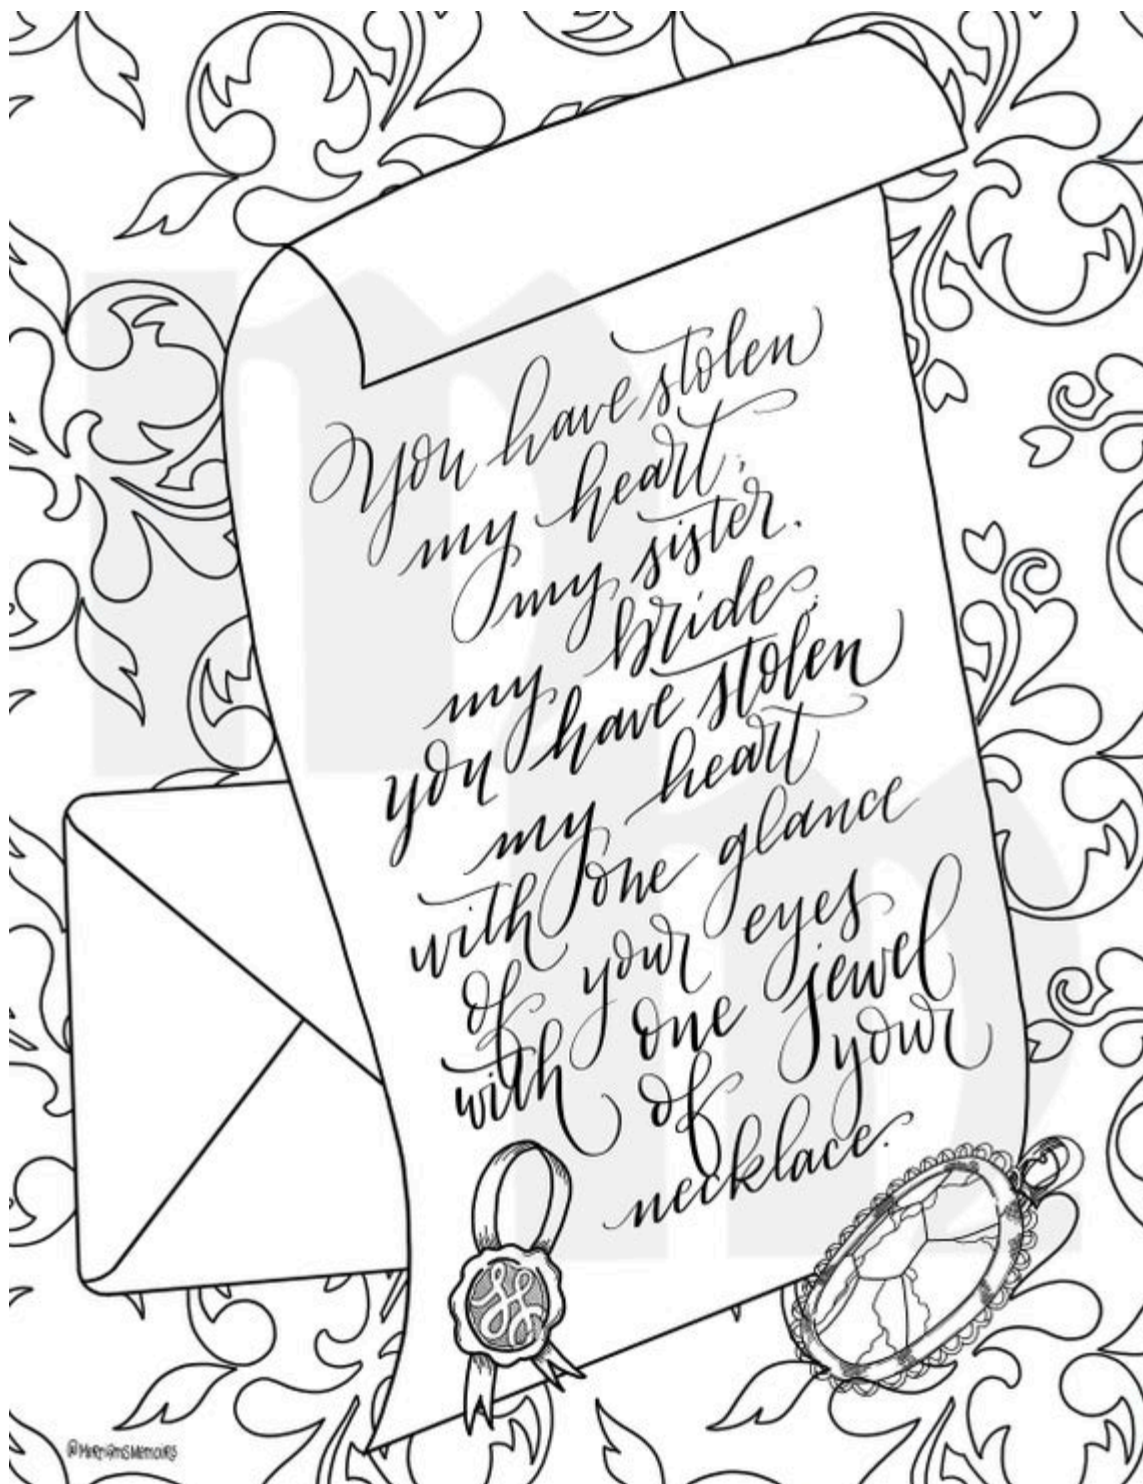 You have stolen
my heart,
my sister,
my bride;
you have stolen
my heart
with one glance
of your eyes
with one jewel
of your
necklace.
@MiriamsMemoirs